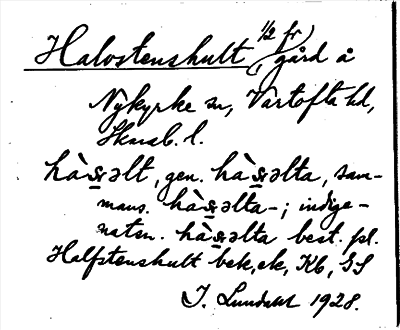 Halostenshult, 1/2 fr, gård å
Nykyrke sn, Vartofta hd,
Skarab. l.
hàs̲əlt, gen. hàs̲əlta, sam-
mans. hàs̲əlta-; indige-
naten. hàs̲əlta best. pl.
Halfstenshult bek, ek, Kb, GS
I. Lundahl 1928.